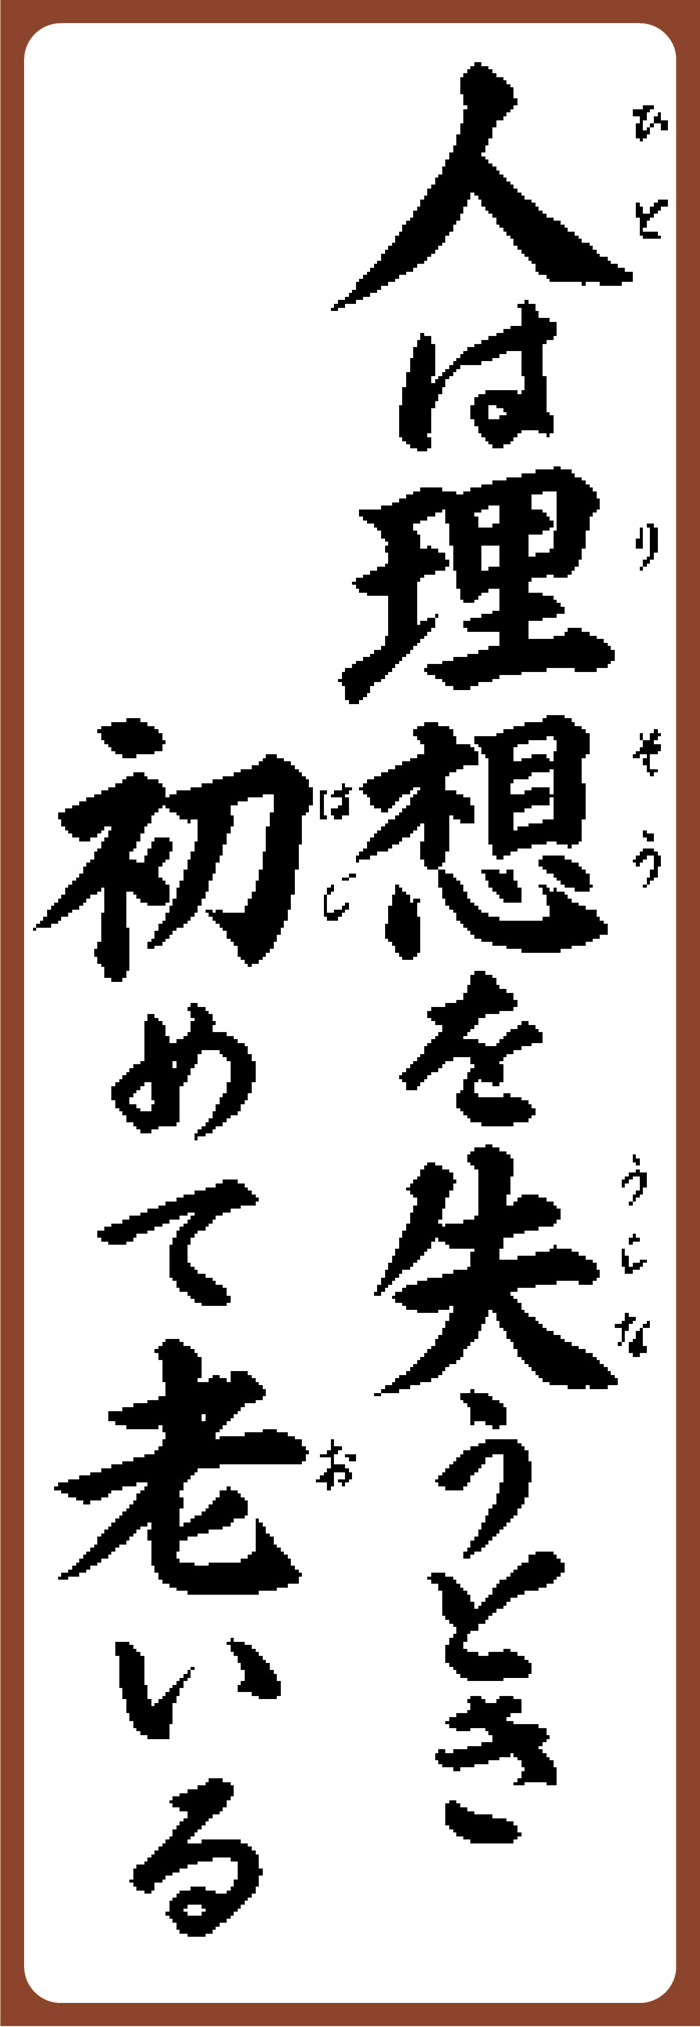 人は理想を失うとき
ひと りそう うしな
初めて老いる
はじ お